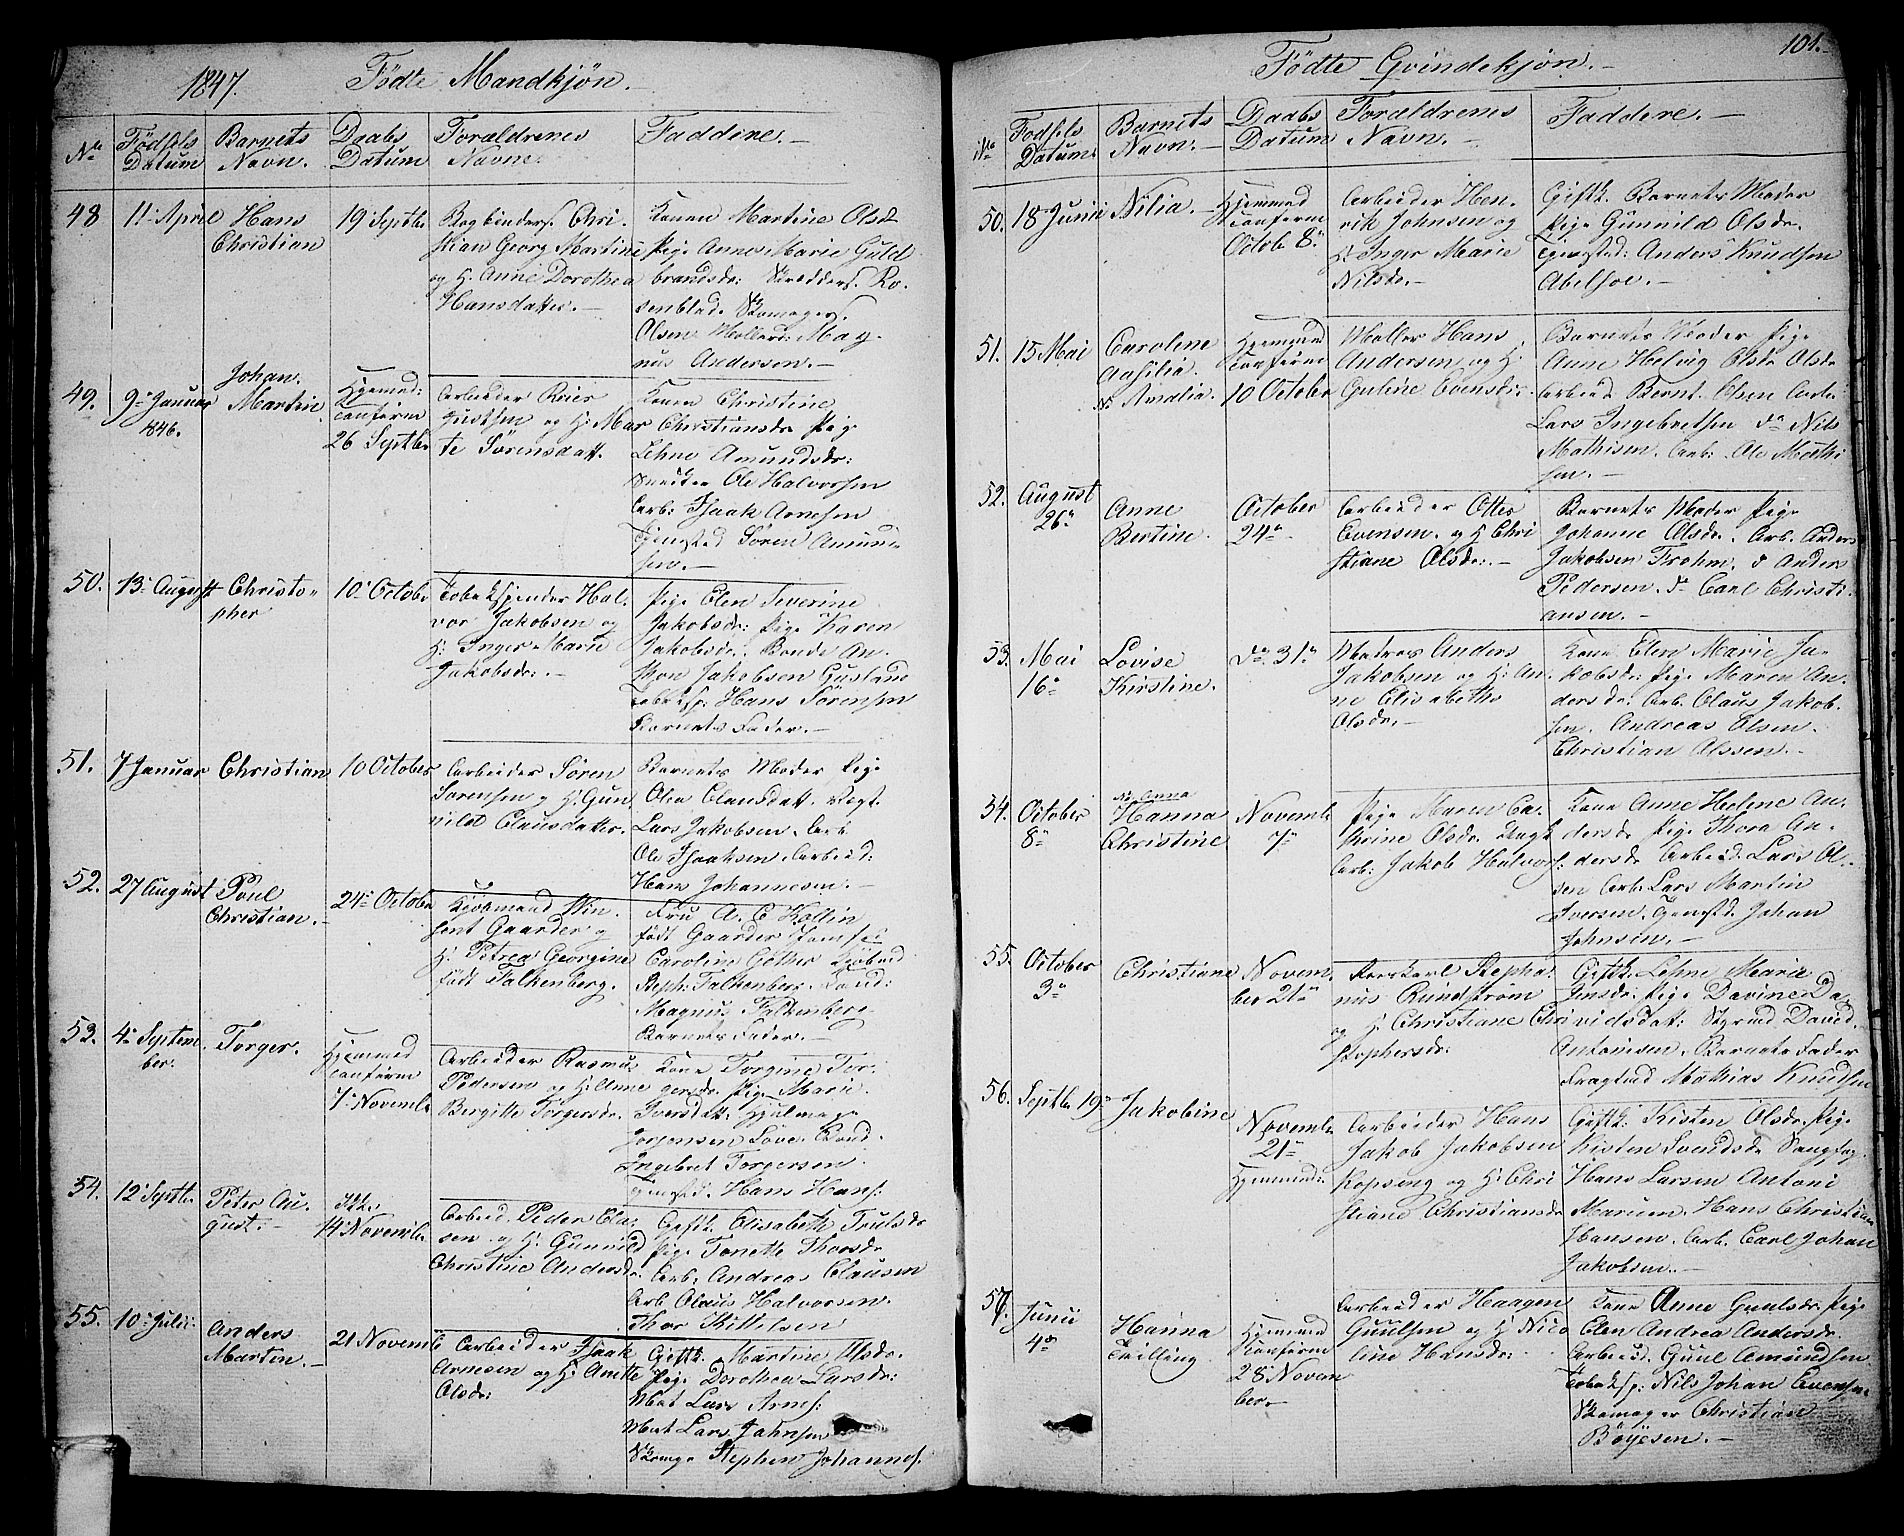 1847. Födte Mandkjøn.
No Födsels Datum Barnets Navn. Daabs Datum Foræeldrenes Navne. Faddere.
48 11. April Hans Christian 19 Septbr
Bogbinders. Chri-
stian Georg Martini
og H. Anne Dorothea
Hansdatter.
Konen Martine Olsd
Pige Anne Marie Guld
brandsdr: Skredders. Ro-
senblad Skomagers.
Olsen Møllerd: Mag-
nus Andersen.
49. 9. Januar 1846. Johan Martin Hjemmed: Conferm 26 Septbr
Arbeider
og H: Mar
te Sörensdatt.
Konen Christine
Christiansdr Pige
Lehne Amundsdr:
Ole Halvorsen
Arb: Isaak Arnesen
Tjenestd Sören Amund-
sen.
50. 13. August Christo-
pher 10 Octobr
Tobaksspinder Hal-
vor Jakobsen og
H: Inger Marie
Jakobsdr:
Pige Elen Severine
Jakobsdr: Pige Karen
Jakobsdr. Bonde An-
Jakobsen
Hans Sörensen
Barnets Fader.
51. 7 Januar Christian 10 October
Arbeider Sören
Sörensen og H: Gun
nild Clausdatter.
Barnets Moder Pige
Olea Clausdatt. Vægt.
Lars Jakobsen. Arb
Ole Isaaksen. Arbeid:
Hans Johannesen.
52. 27 August Poul
Christian. 24. Octobr
Kjöbmand Win-
sent Gaarder og
H: Petrea Georgine
født Falkenberg.
Fru A. C Kollin
født Gaarder Jomfru
Caroline Göther Kjöbmd
Steph: Falkenberg. Cand:
Magnus Falkenberg
Barnets Fader.
53. 4. Septem
ber. Torger. Hjemmed
Conferm
7. Novembr
Arbeider Rasmus
Pedersen og H: Anne
Birgitte Torgersdr.
Kone Torgine Tor-
gersdr. Pige Marie
Iversdatt. Hjulmager
Jörgensen Löve. Bond.
Ingebret Torgersen.
Tjenestd. Hans Hans:
54. 12 Septb. Peter Au-
gust. 14 Novembr
Arbeid. Peder Cla-
sen og H: Gunnild
Christine Andersdr.
Gift K. Elisabeth Trulsdr
Pige Tonette Thorsdr
Arb: Andreas Clausen
Arb Olaus Halvorsen.
Thor Kittelsen
55. 10. Julii Anders
Marten. 21 Novemb
Arbeider Isaak
Arnesen og H: Anette
Olsdr:
Gift K. Martine Olsdr.
Pige Dorothea Larsdr:
Mat Lars Arnes:
Mat Lars Johnsen
Skomage Stephen Johannes.
Födte Qvindekjøn. 101.
No Födsels Datum Barnets Navn. Daabs Datum Forældrenes Navn. Faddere.
50. 18 Junii Nilia. Hjemmed
Conferm
Octobr 8.
Arbeider Hen-
rik Johnsen og
H: Inger Marie
Nilsdr.
Gift K. Barnets Moder
Pige Gunnild Olsdr.
Tjenestd: Anders Knudsen
Abelsoe.
51. 15 Mai Caroline
Amalia. Hjemmed
Conferm
10 October
Møller Hans
Andersen og H:
Guline Evensdr.
Barnets Moder Pige
Anne Helvig Olsdr Olsdr
Arbeid Bernt Olsen
Lars Ingebretsen do Nils
Mathisen. Arb: Ole Mathi
sen.
52. August
26. Anne
Bertine. October
24.
Arbeider Otter
Evensen. og H: Chri
stiane Olsdr:
Barnets Moder Pige
Johanne Olsdr. Arb. Anders
Jakobsen Frohm. d Anders
Pedersen. do Carl Christi
ansen.
53. Mai
16. Lovise
Kirstine. do 31.
Matros Anders
Jakobsen og H: An-
ne Elisabeths
Olsdr.
Kone Elen Marie Ja-
kobsdr: Pige Maren An-
dersdr. Arb. Claus Jakob-
sen. Andreas Olsen
Christian Olssen.
54. October
8. Hanna
Christine Novembr
7.
Pige Maren Ca-
thrine Olsdr.
Arb: Jakob Halvors:
Kone Anne Helene An-
dersdr Pige Thora An-
dersdr Arbeid. Lars Ol-
sen Arb. Lars Martin
Iversen. Tjenestd. Johan
Johnsen.
55. October
3. Christiane Novem-
ber 21.
Stepha-
nus Rundström
og H: Christiane Chri
stophersdr:
Gift K. Lehne Marie
Jensdr: Pige Davine Da-
vidsdatt: Styrmd David
Antonisen. Barnets Fader
Fragtmd Mathias Knudsen
56. Septb. 19. Jakobine Novembr
21.
Hjemmed:
Arbeider Hans
Jakob Jakobsen
Kopseng og H: Chri
stiane Christiansdr
Gift K: Kisten Olsdr. Pige
Kisten Svendsdr
Hans Larsen Antoni
Hans Christian
Hansen. Arb. Carl Johan
Jakobsen.
57. Junii
4. Hanna
Tvilling Hjemmed
Conferm
28 Novem
ber.
Arbeider Haagen
Guulsen og H: Nico
line Hansdr:
Kone Anne Guulsdr. Pige
Elen Andrea Andersdr.
Arbeid. Guul Amundsen
Tobaksp: Nils Johan Evensen
Skomager Christian
Böyesen.